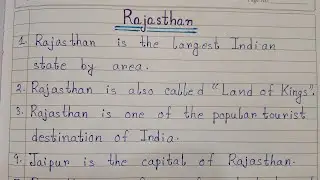 Rajasthan
1. Rajasthan is the largest Indian
state by area.
2. Rajasthan is also called "Land of Kings".
3. Rajasthan is one of the popular tourist
destination of India.
4. Jaipur is the capital of Rajasthan.